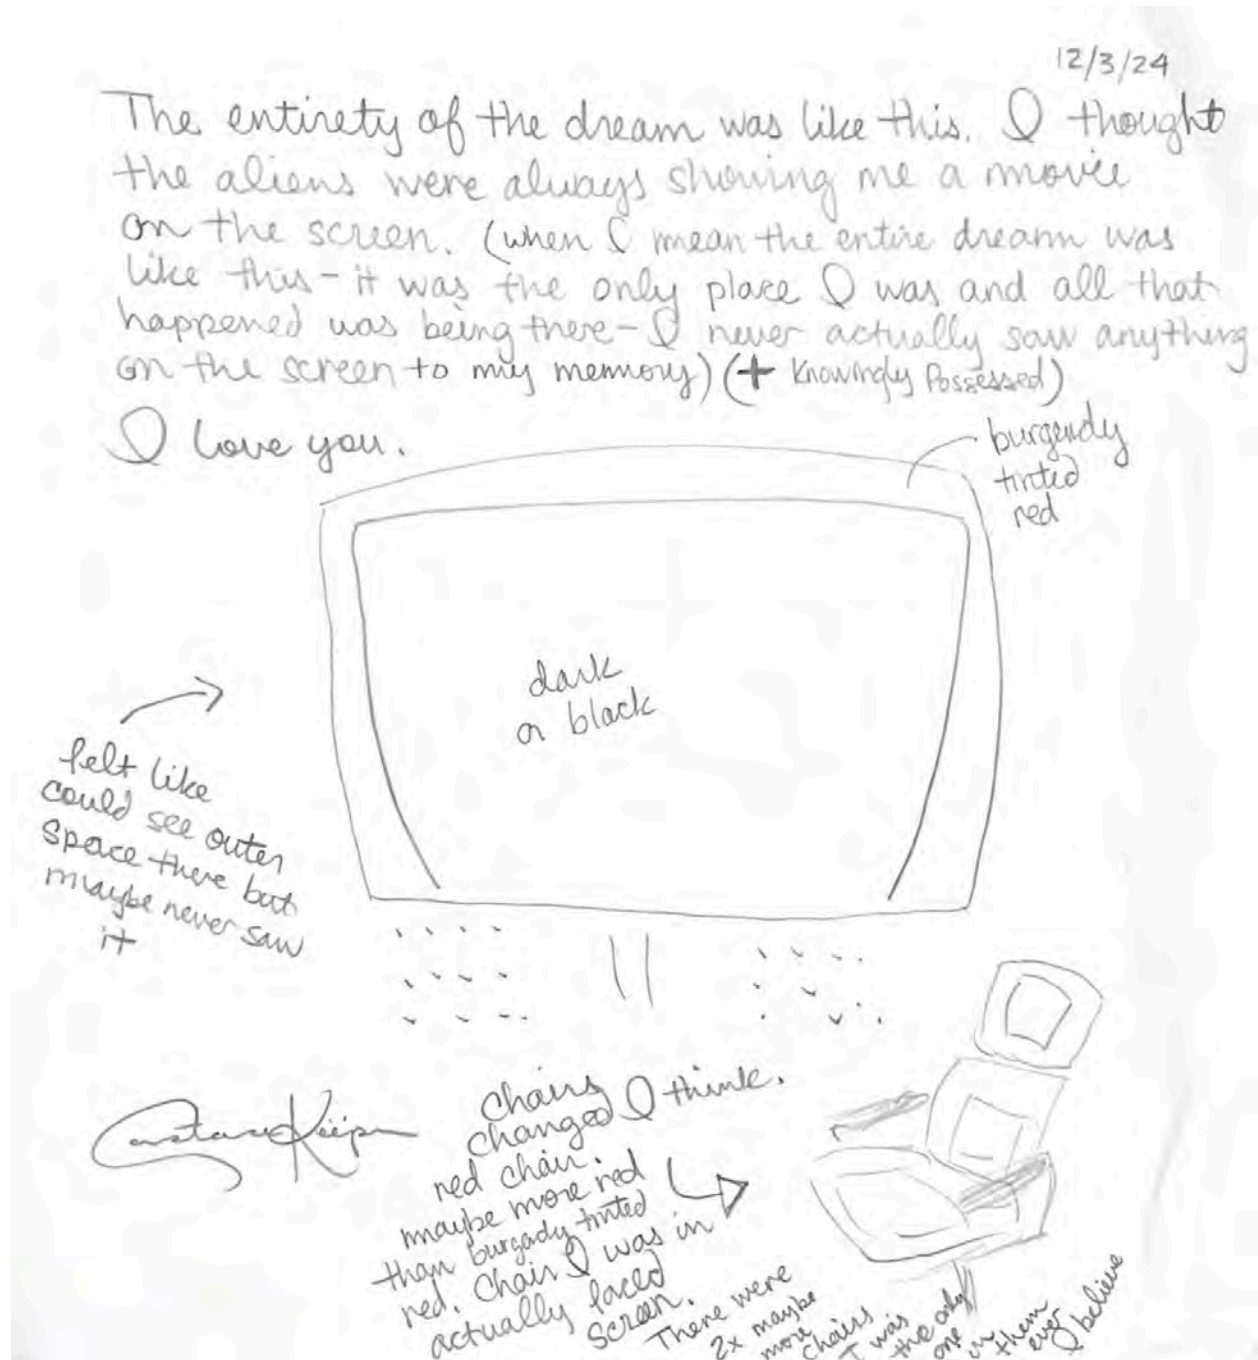 12/3/24
The entirety of the dream was like this. I thought
the aliens were always showing me a movie
on the screen. (when I mean the entire dream was
like this - it was the only place I was and all that
happened was being there - I never actually saw anything
on the screen to my memory) (+ Knowingly Possessed)
I love you.
burgendy
tinted
red
dark
or black
felt like
could see outer
space there but
maybe never saw
it
Chairs
changed I think.
red chair.
maybe more red
than burgandy tinted
red. Chair I was in
actually faced
screen.
There were
2x maybe
more
chairs
I was
the only
one
in
them
ever
I believe